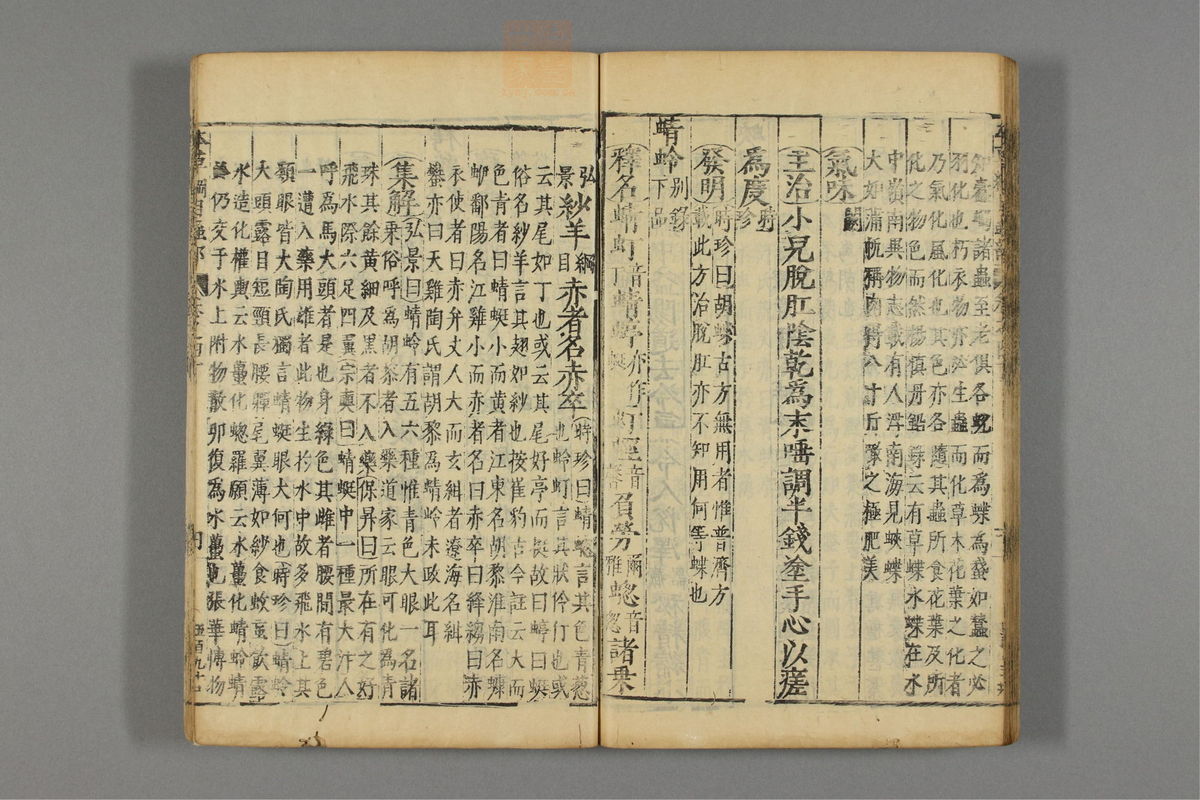 如蠹蠋諸蟲至老俱各蛻而為蝶為蛾如蠶之必
羽化也朽衣物亦必生蟲而化草木花葉之化者
乃氣化風化也其色亦各隨其蟲所食花葉及所
化之物色而然楊慎丹鉛錄云有草蝶水蝶在水
中嶺南異物志載有人浮南海見蛺蝶
大如蒲帆稱肉得八十斤噉之極肥美
氣味闕
主治小兒脫肛陰乾為末唾調半錢塗手心以瘥
為度時珍
發明時珍曰胡蝶古方無用者惟普濟方
載此方治脫肛亦不知用何等蝶也
蜻蛉別錄下品
釋名蜻虰音丁蜻蝏亦作蜓虰蛵音馨負勞爾雅蟌音怱諸乘
弘景紗羊綱目赤者名赤卒時珍曰蜻蟌言其色青葱
也蛉虰言其狀伶仃也或
云其尾如丁也或云其尾好亭而挺故曰蝏曰蜓
俗名紗羊言其翅如紗也按崔豹古今註云大而
色青者曰蜻蜓小而黃者江東名胡黎淮南名蠊
蛜鄱陽名江雞小而赤者名曰赤卒曰絳縐曰赤
衣使者曰赤弁丈人大而玄紺者遼海名紺
蠜亦曰天雞陶氏謂胡黎為蜻蛉未攷此耳
集解弘景曰蜻蛉有五六種惟青色大眼一名諸
乘俗呼為胡黎者入藥道家云眼可化為青
珠其餘黃細及黑者不入藥保昇曰所在有之好
飛水際六足四翼宗奭曰蜻蜓中一種最大汴人
呼為馬大頭者是也身綠色其雌者腰間有碧色
一遭入藥用雄者此物生於水中故多飛水上其
類眼皆大陶氏獨言蜻蜓眼大何也時珍曰蜻蛉
大頭露目短頸長腰軃尾翼薄如紗食蚊蝱飲露
水造化權輿云水蠆化蟌羅願云水蠆化蜻蛉蜻
蛉仍交于水上附物散卵復為水蠆也張華博物